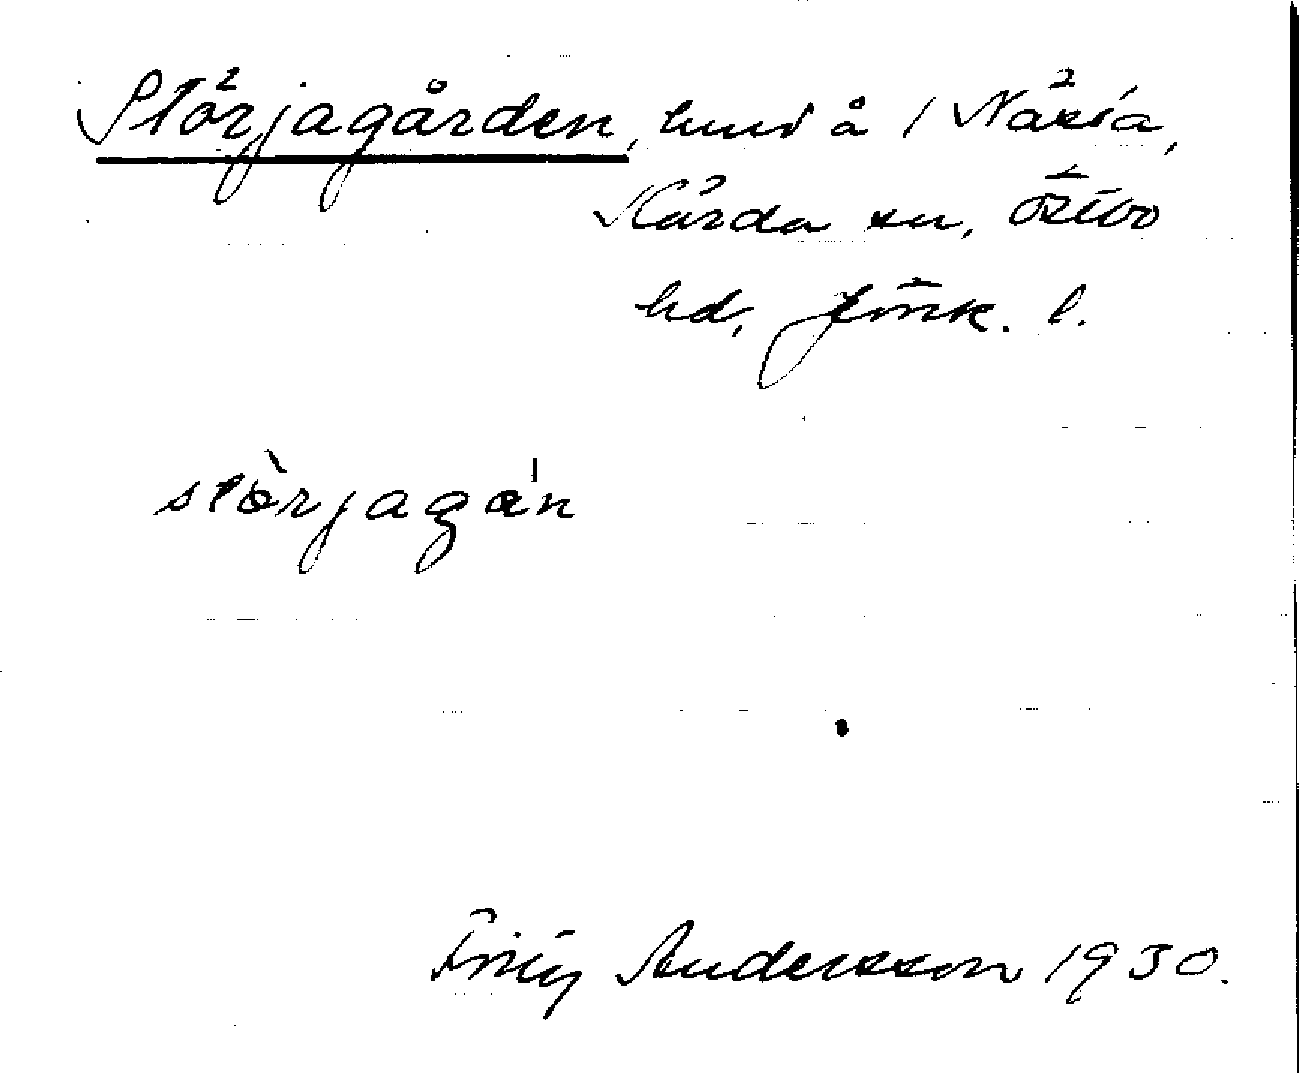 Störjagården, hmd å 1 Nästa,
Kärda sn, Östbo
hd, Jönk. l.
stòrjagán
Andersson 1930.